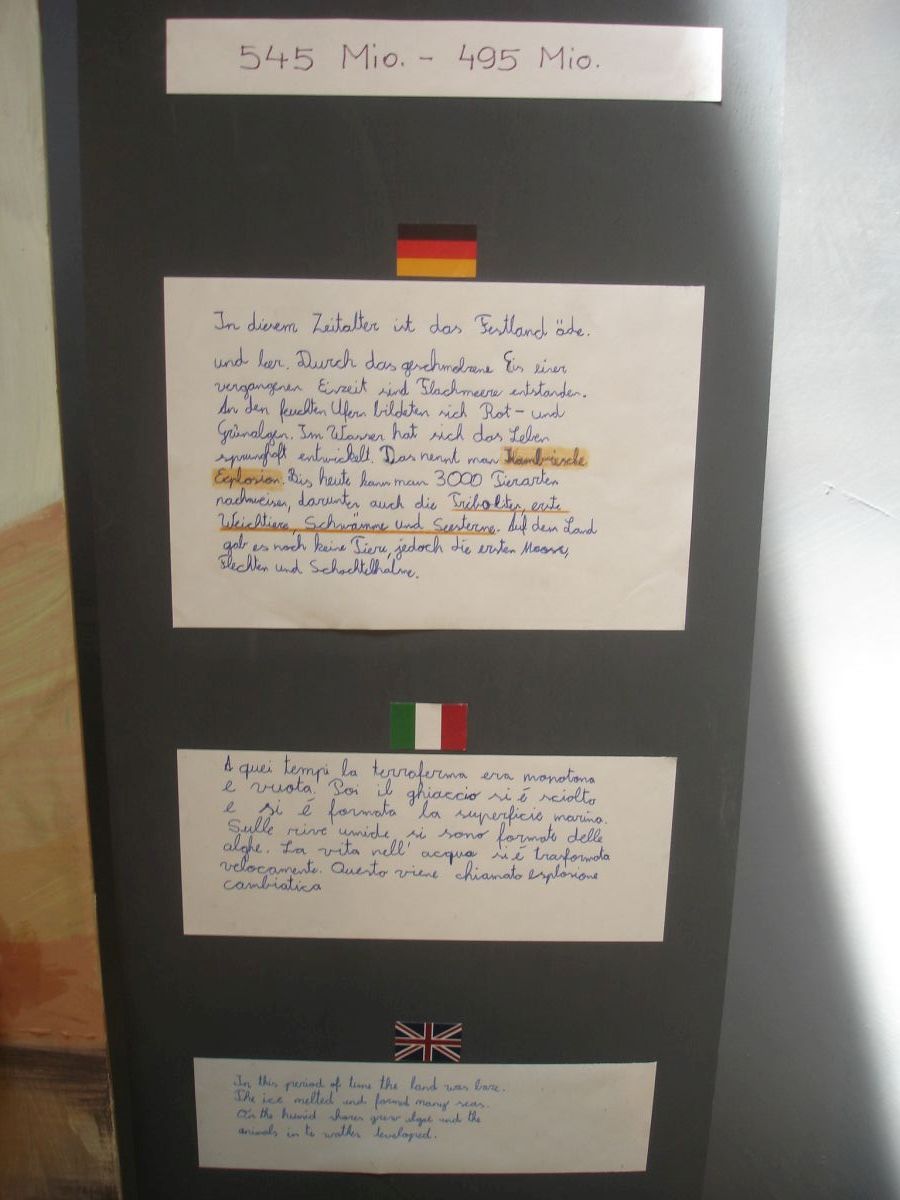 545 Mio. - 495 Mio.
In diesem Zeitalter ist das Festland öde.
und leer. Durch das geschmolzene Eis einer
vergangenen Eiszeit sind Flachmeere entstanden.
An den feuchten Ufern bildeten sich Rot- und
Grünalgen. Im Wasser hat sich das Leben
sprunghaft entwickelt. Das nennt man Kambrische
Explosion. Bis heute kann man 3000 Tierarten
nachweisen, darunter auch die Triboliten, erste
Weichtiere, Schwämme und Seesterne. Auf dem Land
gab es noch keine Tiere, jedoch die ersten Moose,
Flechten und Schachtelhalme.
A quei tempi la terraferma era monotona
e vuota. Poi il ghiaccio si é sciolto
e si é formata la superficie marina.
Sulle rive umide si sono formate delle
alghe. La vita nell' acqua si é trasformata
velocemente. Questo viene chiamato esplosione
cambiatica
In this period of time the land was bare.
The ice melted and formed many seas.
On the humid shores grew algae and the
animals in te wather developed.